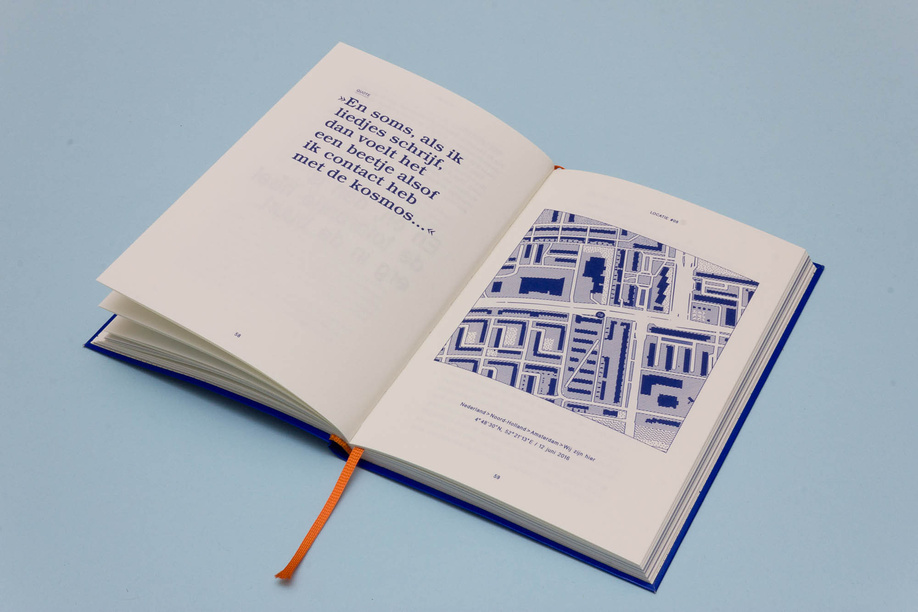 »En soms, als ik
liedjes schrijf,
dan voelt het
een beetje alsof
ik contact heb
met de kosmos...«
58
Locatie #04
Nederland > Noord-Holland > Amsterdam > Wij zijn hier
4°48'30"N, 52°21'13"E / 12 juni 2016
59